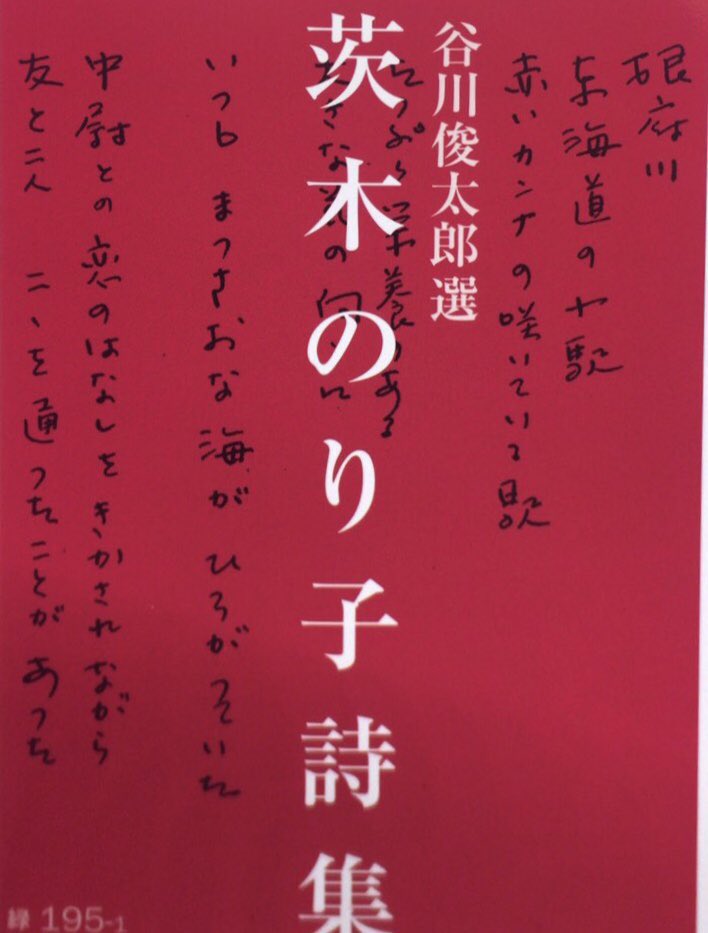 谷川俊太郎選
茨木のり子詩集
根府川
東海道の小駅
赤いカンナの咲いている駅
たっぷり栄養のある
大きな花の向うに
いつも まっさおな海が ひろがっていた
中尉との恋のはなしをきかされながら
友と二人 ここを通ったことが あった
緑 195-1